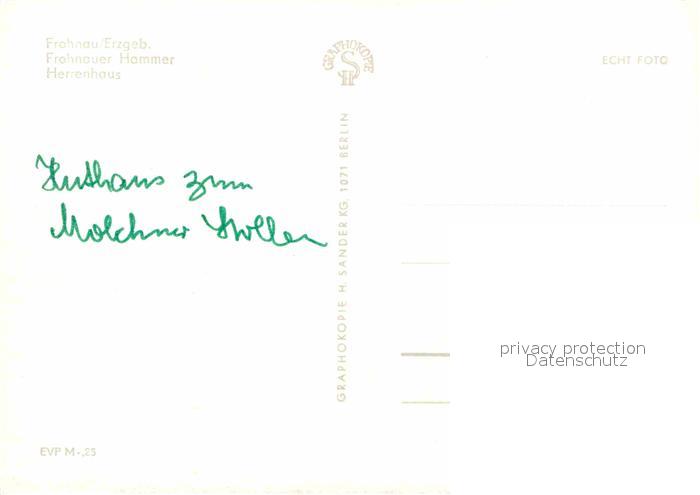 Frohnau/Erzgeb.
Frohnauer Hammer
Herrenhaus
GRAPHOKOPIE
H S
ECHT FOTO
Huthaus zum
Molchner Stollen
GRAPHOKOPIE H. SANDER KG. 1071 BERLIN
privacy protection
Datenschutz
EVP M -,25